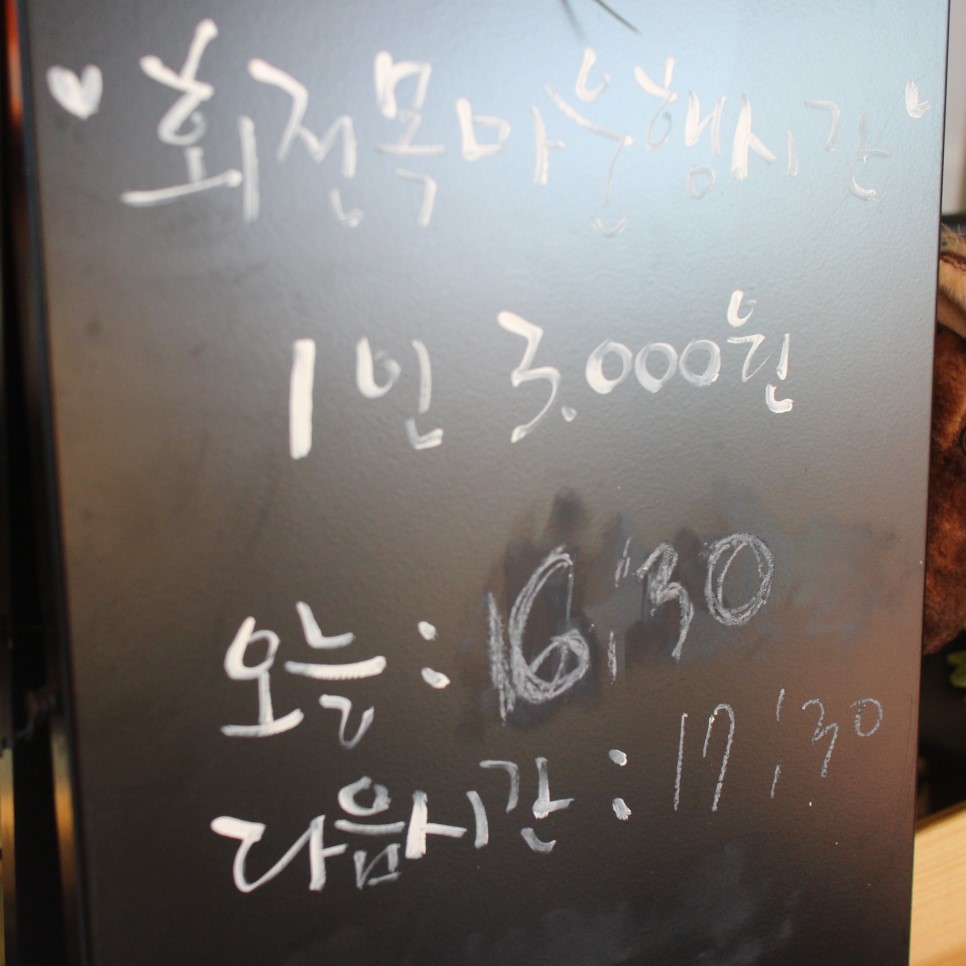 ♥ 회전목마 운행시간 ♥
1인 3.000원
오늘 : 16:30
다음시간 : 17:30